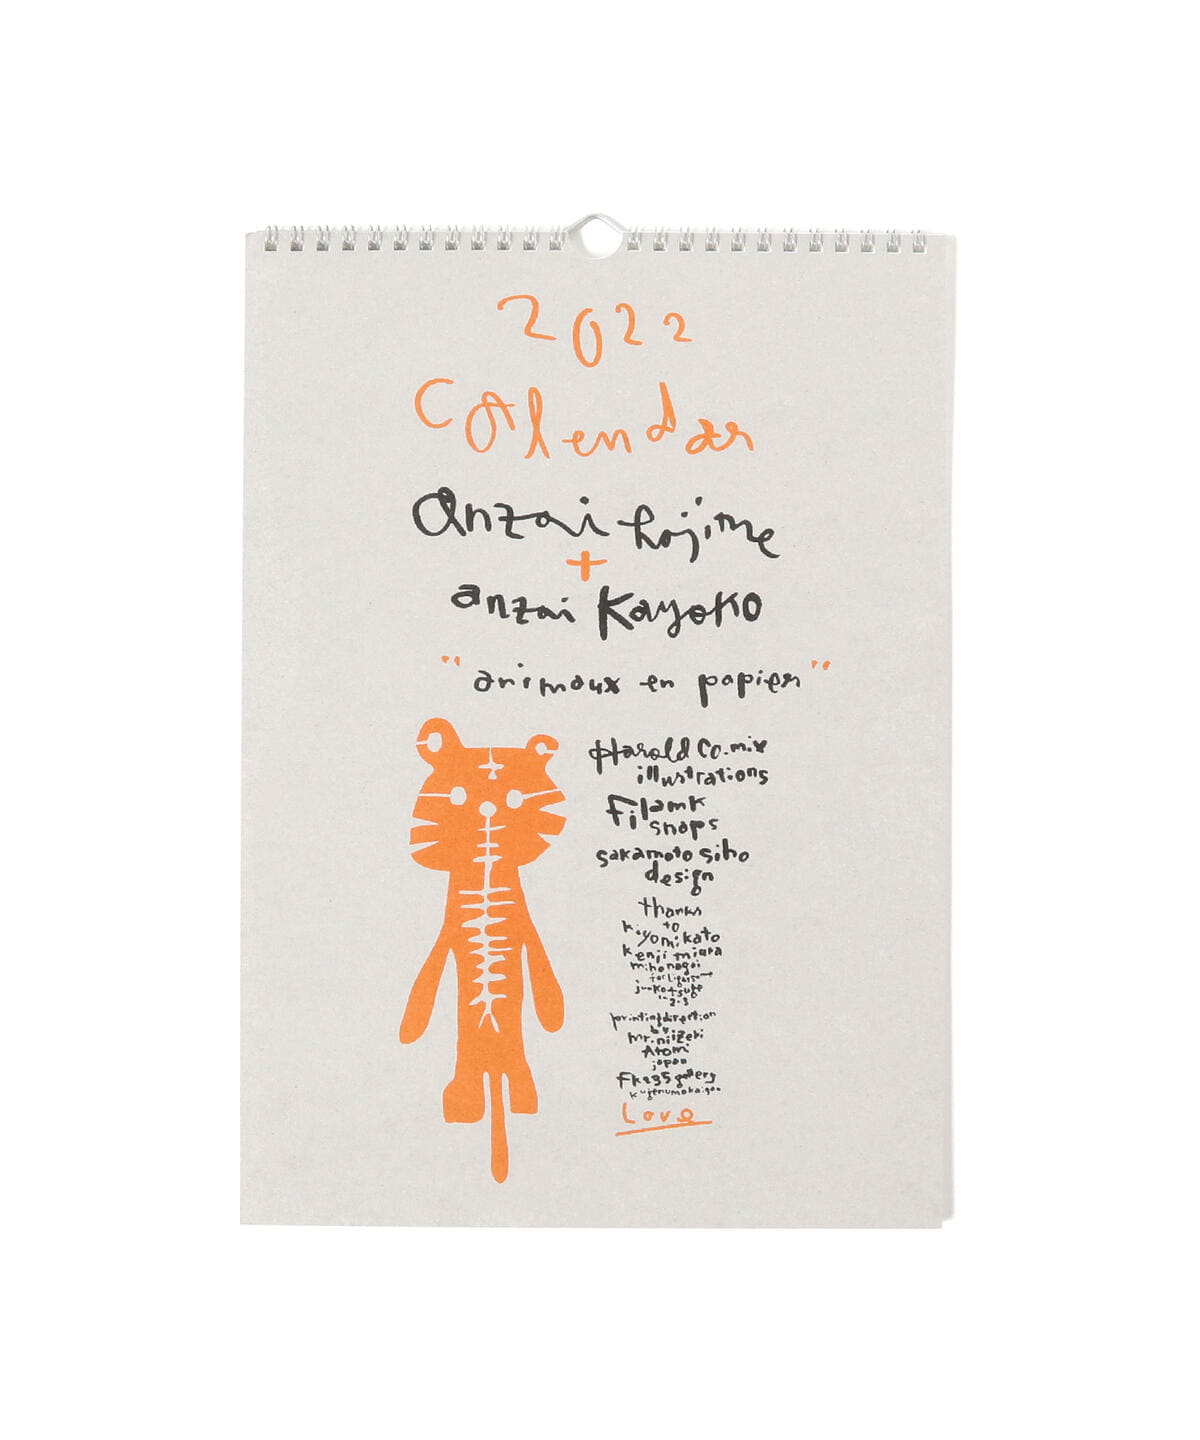 2022
Calendar
anzai hajime
+
anzai Kayoko
"animaux en papier"
Harold co.mix
illustrations
Filamk
snaps
sakamoto siho
design
thanks
to
kiyomi kato
kenji miura
miho nagai
junko tsuge
1-2-3
printing direction
by
mr.niizeki
Atomi
japan
FK235 gallery
Love